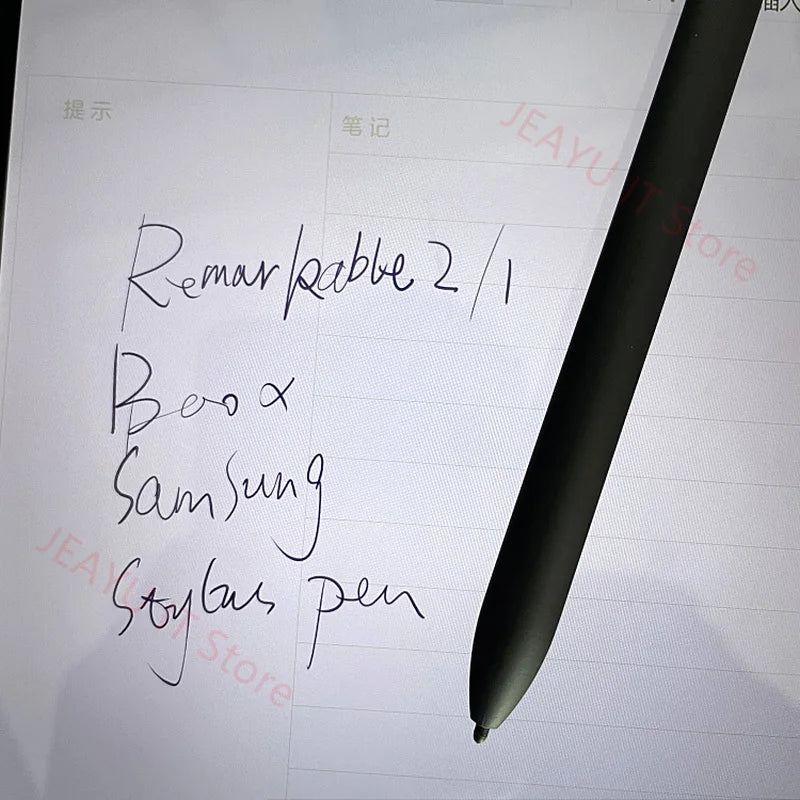 插入
提示
笔记
JEAYU IT Store
Remarkable 2/1
Boox
Samsung
Stylus pen
JEAYU IT Store